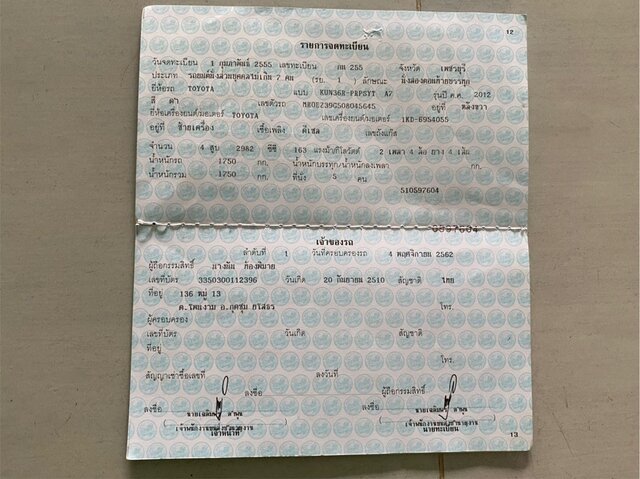 12
รายการจดทะเบียน
วันจดทะเบียน 1 กุมภาพันธ์ 2555 เลขทะเบียน กม 255 จังหวัด เพชรบุรี
ประเภท รถยนต์นั่งส่วนบุคคลไม่เกิน 7 คน (รย. 1 ) ลักษณะ นั่งสองตอนท้ายบรรทุก
ยี่ห้อรถ TOYOTA แบบ KUN36R-PRPSYT A7 รุ่นปี ค.ศ. 2012
สี ดำ เลขตัวรถ MR0EZ39G508045645 อยู่ที่
ยี่ห้อเครื่องยนต์/มอเตอร์ TOYOTA เลขเครื่องยนต์/มอเตอร์ 1KD-6954055
อยู่ที่ ซ้ายเครื่อง เชื้อเพลิง ดีเซล เลขถังแก๊ส
จำนวน 4 สูบ 2982 ซีซี 163 แรงม้า/กิโลวัตต์ 2 เพลา 4 ล้อ ยาง 4 เส้น
น้ำหนักรถ 1750 กก. น้ำหนักบรรทุก/น้ำหนักลงเพลา กก.
น้ำหนักรวม 1750 กก. ที่นั่ง 5 คน
510597604
0597604
เจ้าของรถ
ลำดับที่ 1 วันที่ครอบครองรถ 4 พฤศจิกายน 2562
ผู้ถือกรรมสิทธิ์
เลขที่บัตร 3350300112396 วันเกิด 20 กันยายน 2510 สัญชาติ ไทย
ที่อยู่ 136 หมู่ 13
ต.โพนงาม อ.กุดชุม ยโสธร โทร.
ผู้ครอบครอง
เลขที่บัตร วันเกิด สัญชาติ
ที่อยู่
โทร.
สัญญาเช่าซื้อเลขที่ ลงวันที่
ลงชื่อ ผู้ถือกรรมสิทธิ์
ลงชื่อ ลงชื่อ
เจ้าหน้าที่ นายทะเบียน
13